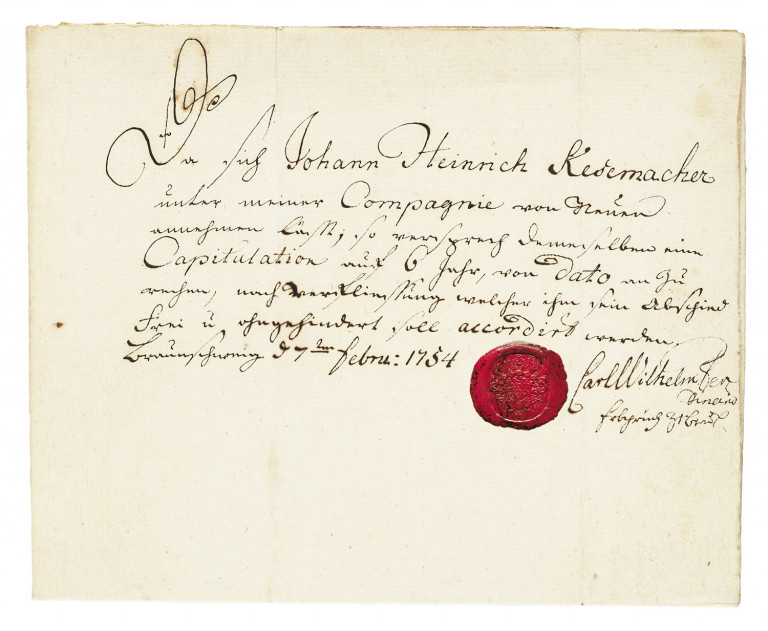 Da sich Johann Heinrich Kesemacher
unter meiner Compagnie von Neuen
annehmen läßt; so versprech demselben eine
Capitulation auf 6 Jahr, von dato an zu
rechen, nach verfliessung welcher ihm sein Abschied
frei u. ohngehindert soll accordirt werden.
Braunschweig d 7ten Febru: 1754
Carl Wilhelm Fer
dinand
Erbprintz